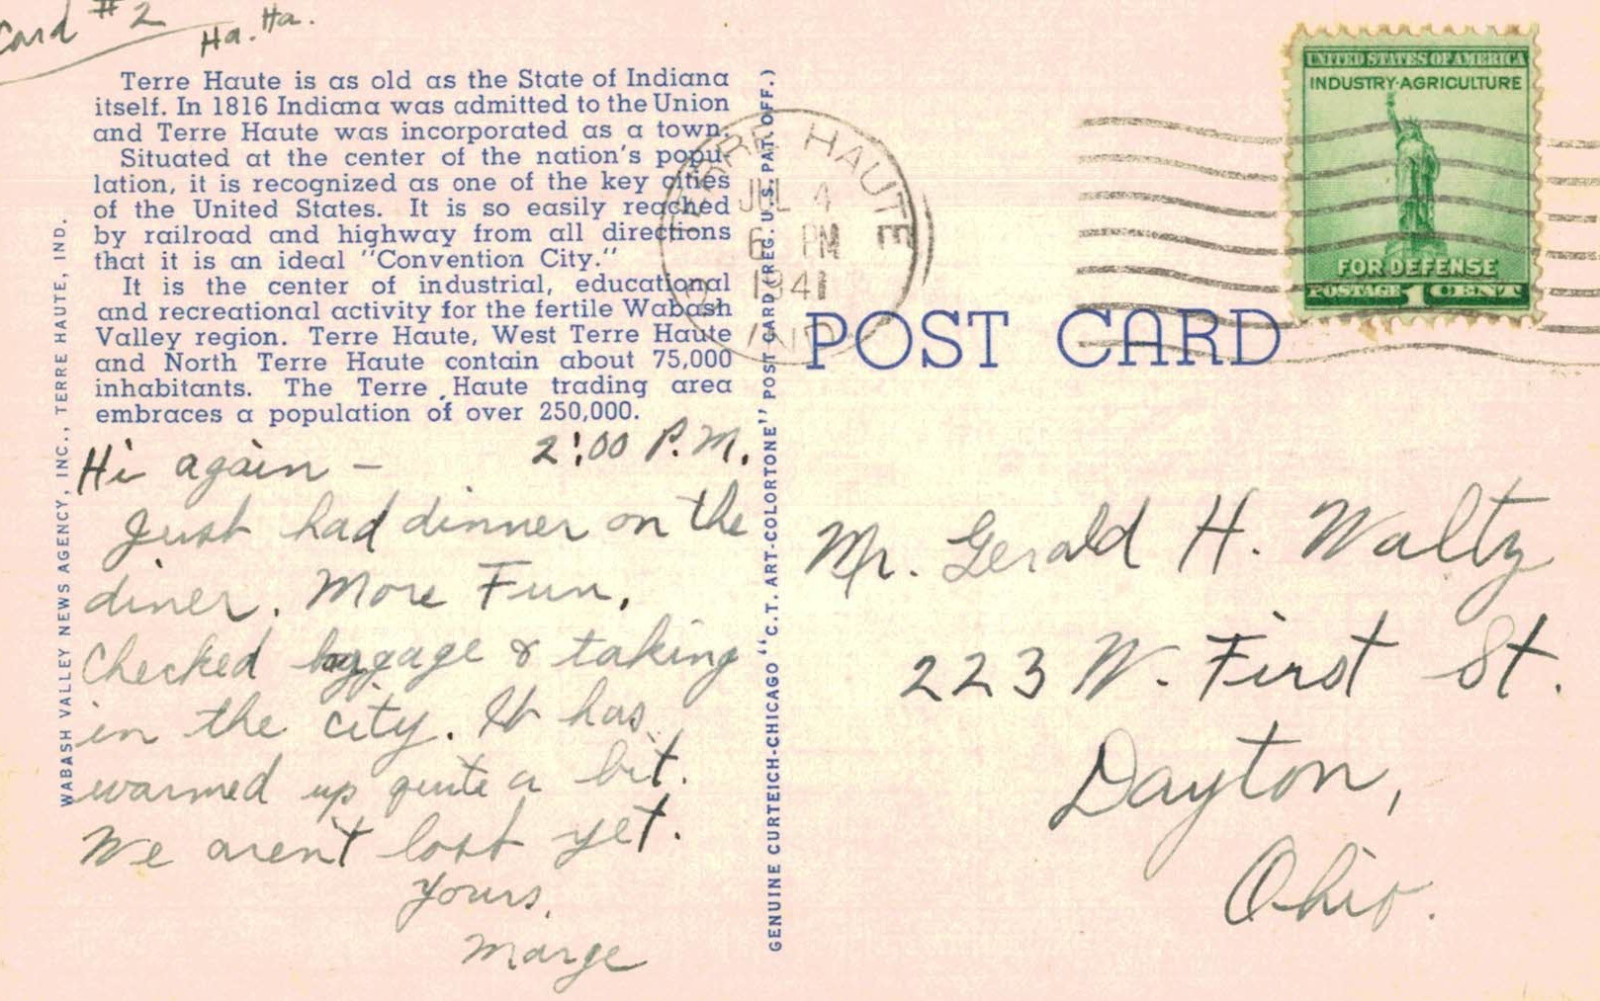 Card #2
Ha. Ha.
Terre Haute is as old as the State of Indiana
itself. In 1816 Indiana was admitted to the Union
and Terre Haute was incorporated as a town.
Situated at the center of the nation's popu-
lation, it is recognized as one of the key cities
of the United States. It is so easily reached
by railroad and highway from all directions
that it is an ideal "Convention City."
It is the center of industrial, educational
and recreational activity for the fertile Wabash
Valley region. Terre Haute, West Terre Haute
and North Terre Haute contain about 75,000
inhabitants. The Terre Haute trading area
embraces a population of over 250,000.
WABASH VALLEY NEWS AGENCY, INC., TERRE HAUTE, IND.
Hi again – 2:00 P.M.
Just had dinner on the
diner. More Fun.
Checked baggage & taking
in the city. It has
warmed up quite a bit.
We aren't lost yet.
Yours,
Marge
GENUINE CURTEICH-CHICAGO "C.T. ART-COLORTONE" POST CARD (REG. U.S. PAT. OFF.)
TERRE HAUTE
JUL 4
6 PM
1941
IND.
UNITED STATES OF AMERICA
INDUSTRY·AGRICULTURE
FOR DEFENSE
POSTAGE 1 CENT
POST CARD
Mr. Gerald H. Waltz
223 W. First St.
Dayton,
Ohio.